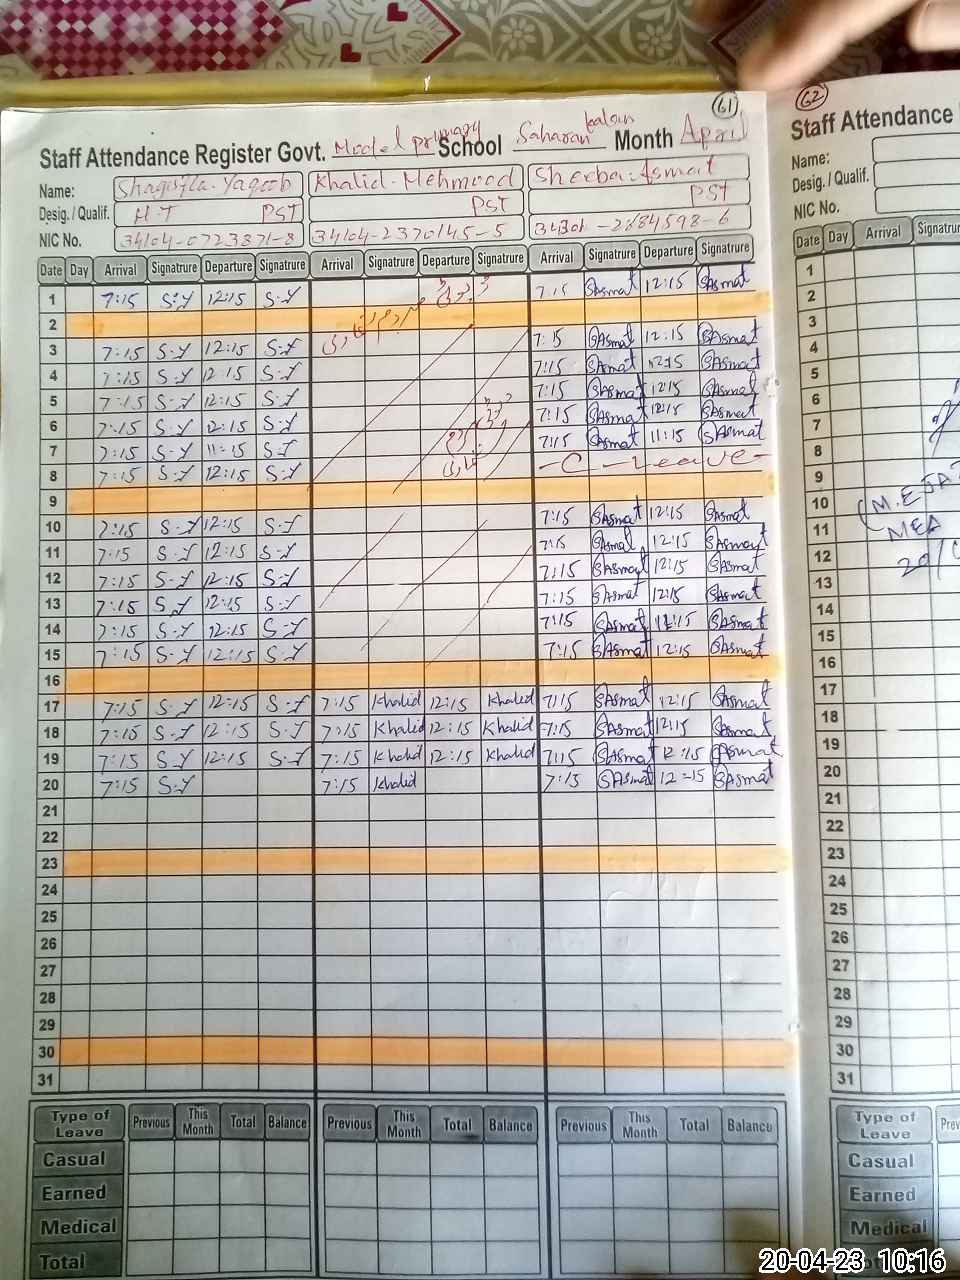 61
62
Staff Attendance Register Govt. Model primary School Saharan kalan Month April
Staff Attendance
Name: Shagufta. Yaqoob Khalid. Mehmood Sheeba. Asmat
Name:
Desig. / Qualif. H.T PST PST PST
Desig. / Qualif.
NIC No. 34104-0723871-8 34104-2370145-5
NIC No.
Date Day Arrival Signatrure Departure Signatrure Arrival Signatrure Departure Signatrure Arrival Signatrure Departure Signatrure
Date Day Arrival
1 7:15 S.Y 12:15 S.Y 7:15 SAsmat 12:15 SAsmat
2
3 7:15 S.Y 12:15 S.Y 7:15 SAsmat 12:15 SAsmat
4 7:15 S.Y 12:15 S.Y 7:15 SAsmat 12:15 SAsmat
5 7:15 S.Y 12:15 S.Y 7:15 SAsmat 12:15 SAsmat
6 7:15 S.Y 12:15 S.Y 7:15 SAsmat 12:15 SAsmat
7 7:15 S.Y 11:15 S.Y 7:15 SAsmat 11:15 SAsmat
8 7:15 S.Y 12:15 S.Y -C-Leave-
9
10 7:15 S.Y 12:15 S.Y 7:15 SAsmat 12:15 SAsmat
11 7:15 S.Y 12:15 S.Y 7:15 SAsmat 12:15 SAsmat
12 7:15 S.Y 12:15 S.Y 7:15 SAsmat 12:15 SAsmat
13 7:15 S.Y 12:15 S.Y 7:15 SAsmat 12:15 SAsmat
14 7:15 S.Y 12:15 S.Y 7:15 SAsmat 12:15 SAsmat
15 7:15 S.Y 12:15 S.Y 7:15 SAsmat 12:15 SAsmat
16
17 7:15 S.Y 12:15 S.Y 7:15 Khalid 12:15 Khalid 7:15 SAsmat 12:15 SAsmat
18 7:15 S.Y 12:15 S.Y 7:15 Khalid 12:15 Khalid 7:15 SAsmat 12:15 SAsmat
19 7:15 S.Y 12:15 S.Y 7:15 Khalid 12:15 Khalid 7:15 SAsmat 12:15 SAsmat
20 7:15 S.Y 7:15 Khalid 7:15 SAsmat 12:15 SAsmat
21
22
23
24
25
26
27
28
29
30
31
Type of Leave Previous This Month Total Balance Previous This Month Total Balance Previous This Month Total Balance
Casual
Earned
Medical
Total
1
2
3
4
5
6
7
8
9
10
11
12
13
14
15
16
17
18
19
20
21
22
23
24
25
26
27
28
29
30
31
MEA
Type of Leave
Casual
Earned
Medical
20-04-23 10:16